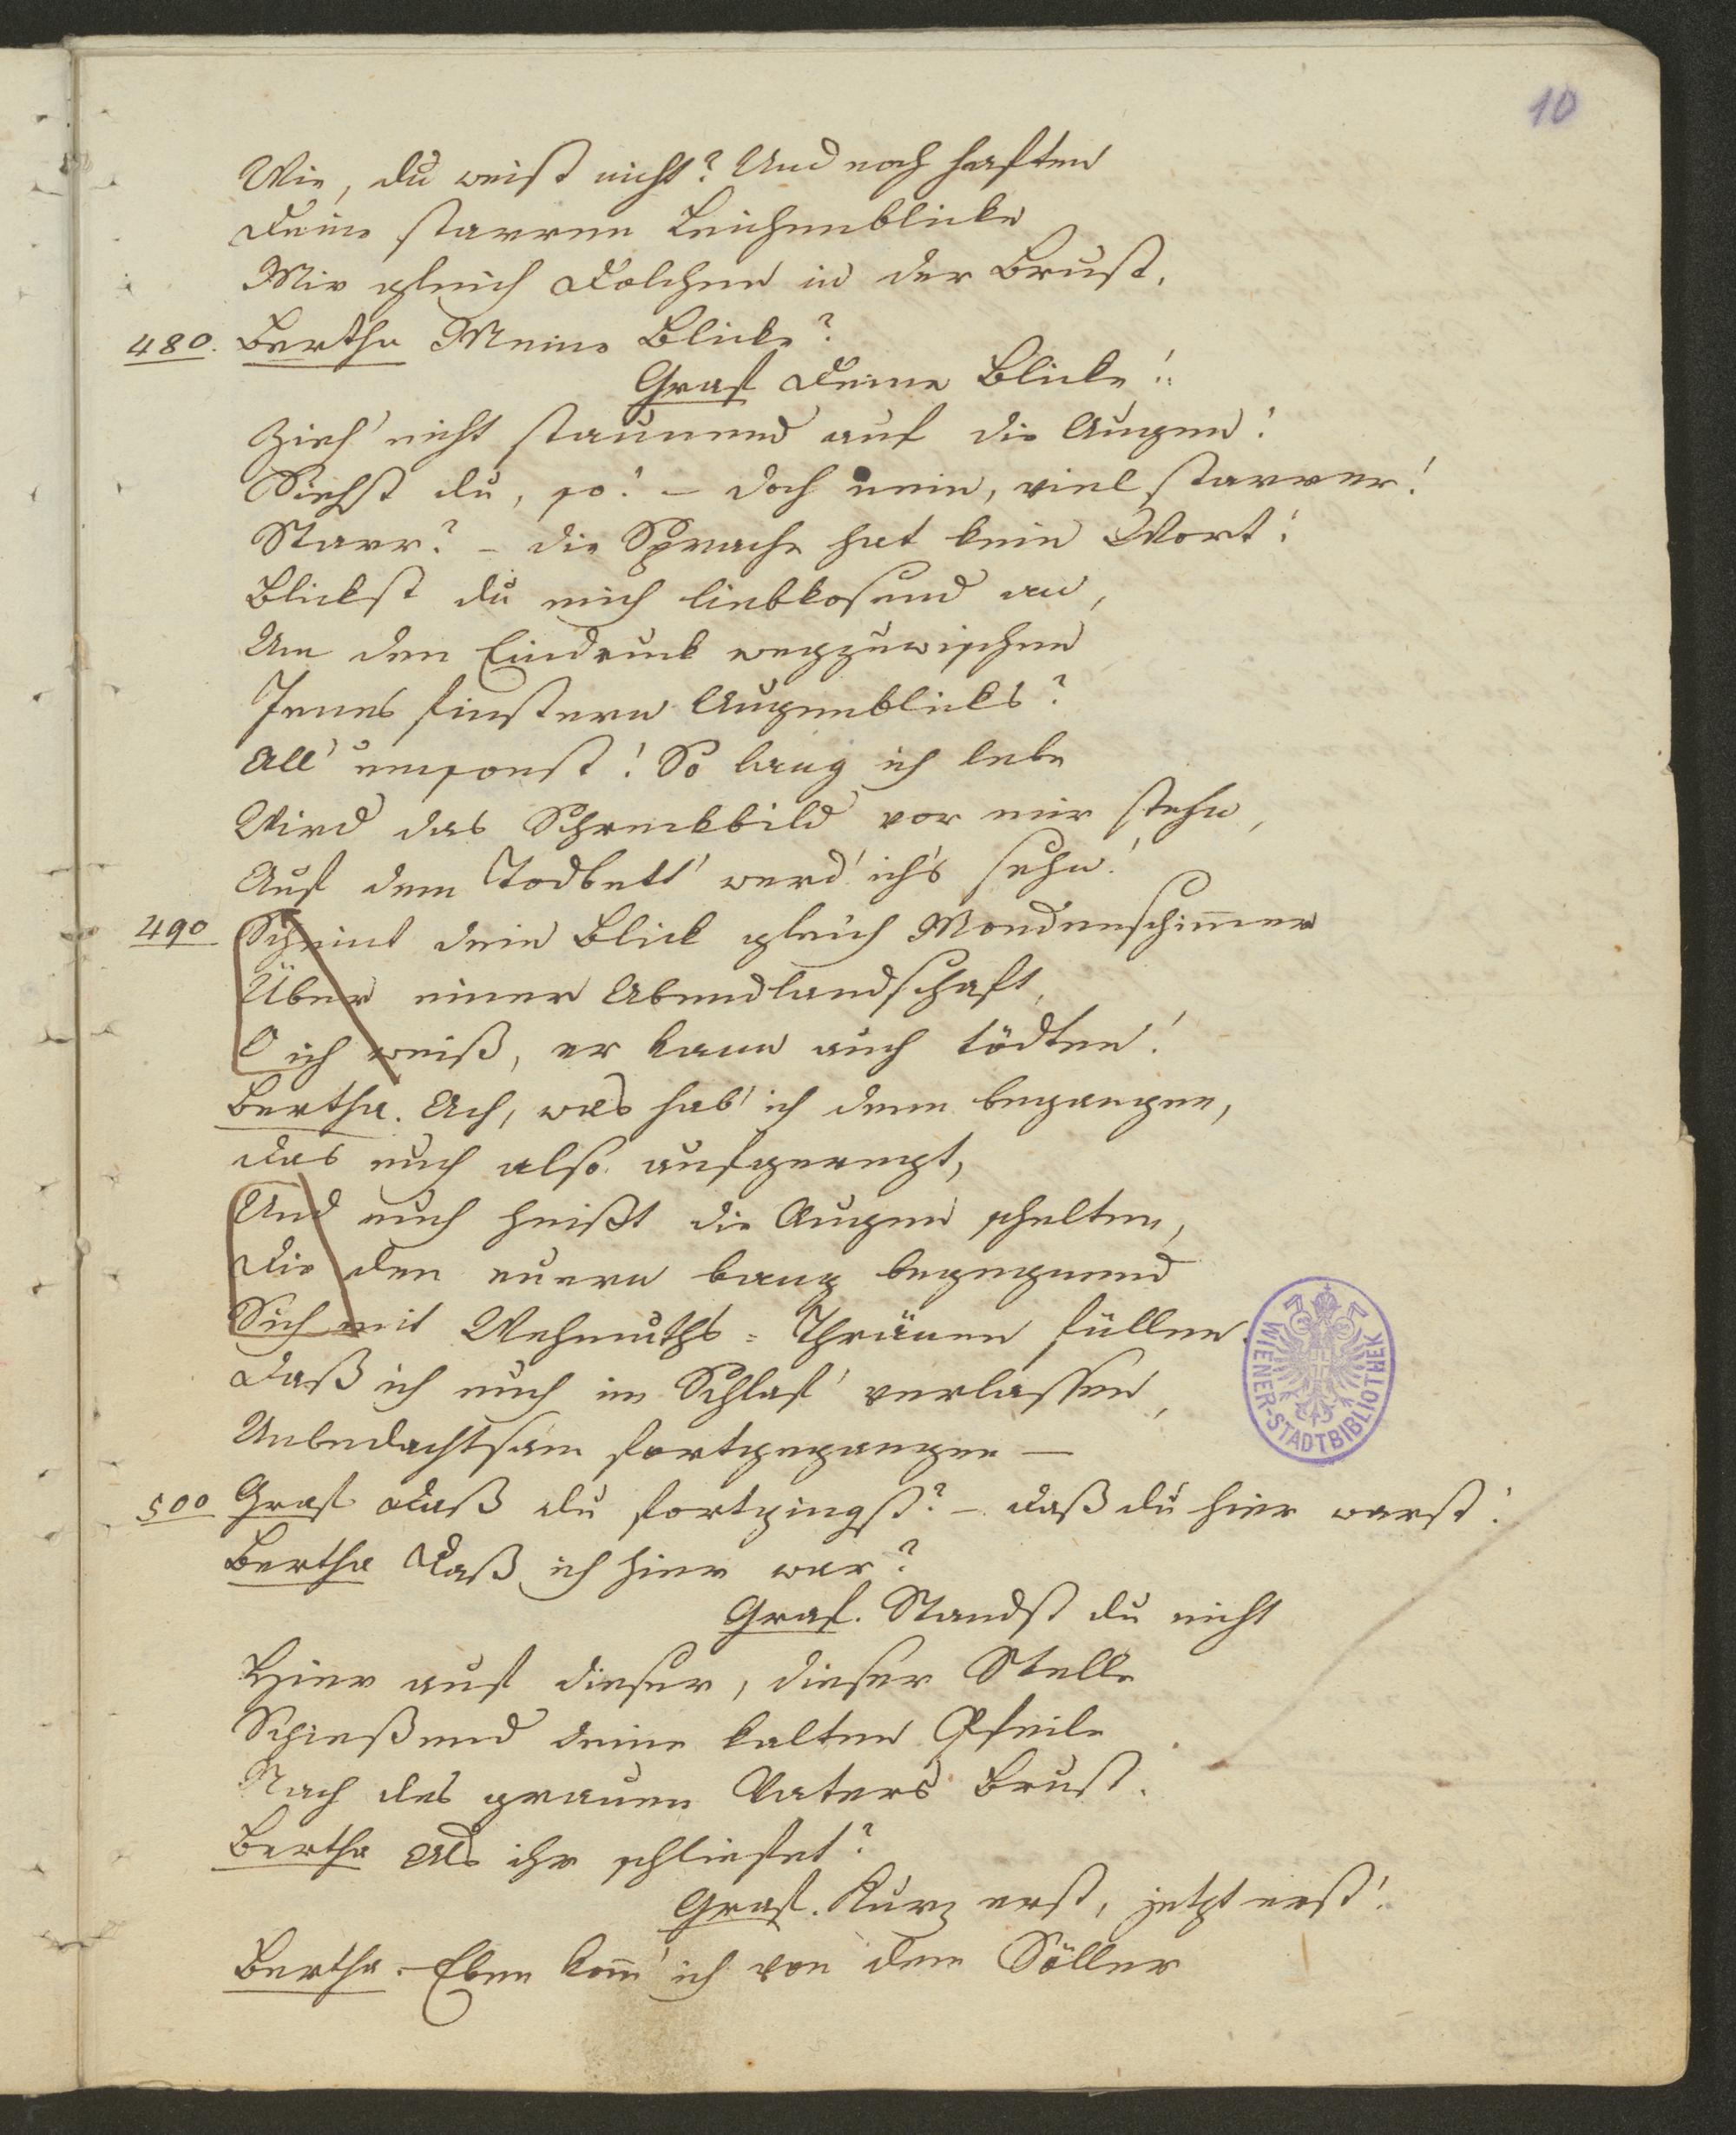 10
Wie, du weißt nicht? Und noch haften
Deine starren Leichenblicke
Mir gleich Dolchen in der Brust.
480. Bertha Meine Blicke?
Graf Deine Blicke!
Zieh' nicht staunend auf die Augen!
Siehst du, so! – doch nein, viel starrer!
Starr? – die Sprache hat kein Wort!
Blickst du mich liebkosend an,
Um den Eindruck wegzuwischen
Jenes finstern Augenblicks?
All' umsonst! So lang ich lebe
Wird das Schreckbild vor mir stehn,
Auf dem Todbett' werd' ich's sehn!
490 Scheint dein Blick gleich Mondenschimmer
Über einer Abendlandschaft,
O ich weiß, er kann auch tödten!
Bertha. Ach, was hab' ich denn begangen,
Das euch also aufgeregt,
Und euch heißt die Augen schelten,
Die den euern bang begegnend
Sich mit Wehmuths-Thränen füllen.
Daß ich euch im Schlaf' verlassen,
Unbedachtsam fortgegangen –
500 Graf Daß du fortgingst? – Daß du hier warst!
Bertha Daß ich hier war?
Graf. Standst du nicht
Hier auf dieser, dieser Stelle
Schießend deine kalten Pfeile
Nach des grauen Vaters Brust.
Bertha Als ihr schliefet?
Graf. Kurz erst, jetzt erst!
Bertha. Eben kom̄' ich von dem Söller
WIENER-STADTBIBLIOTHEK